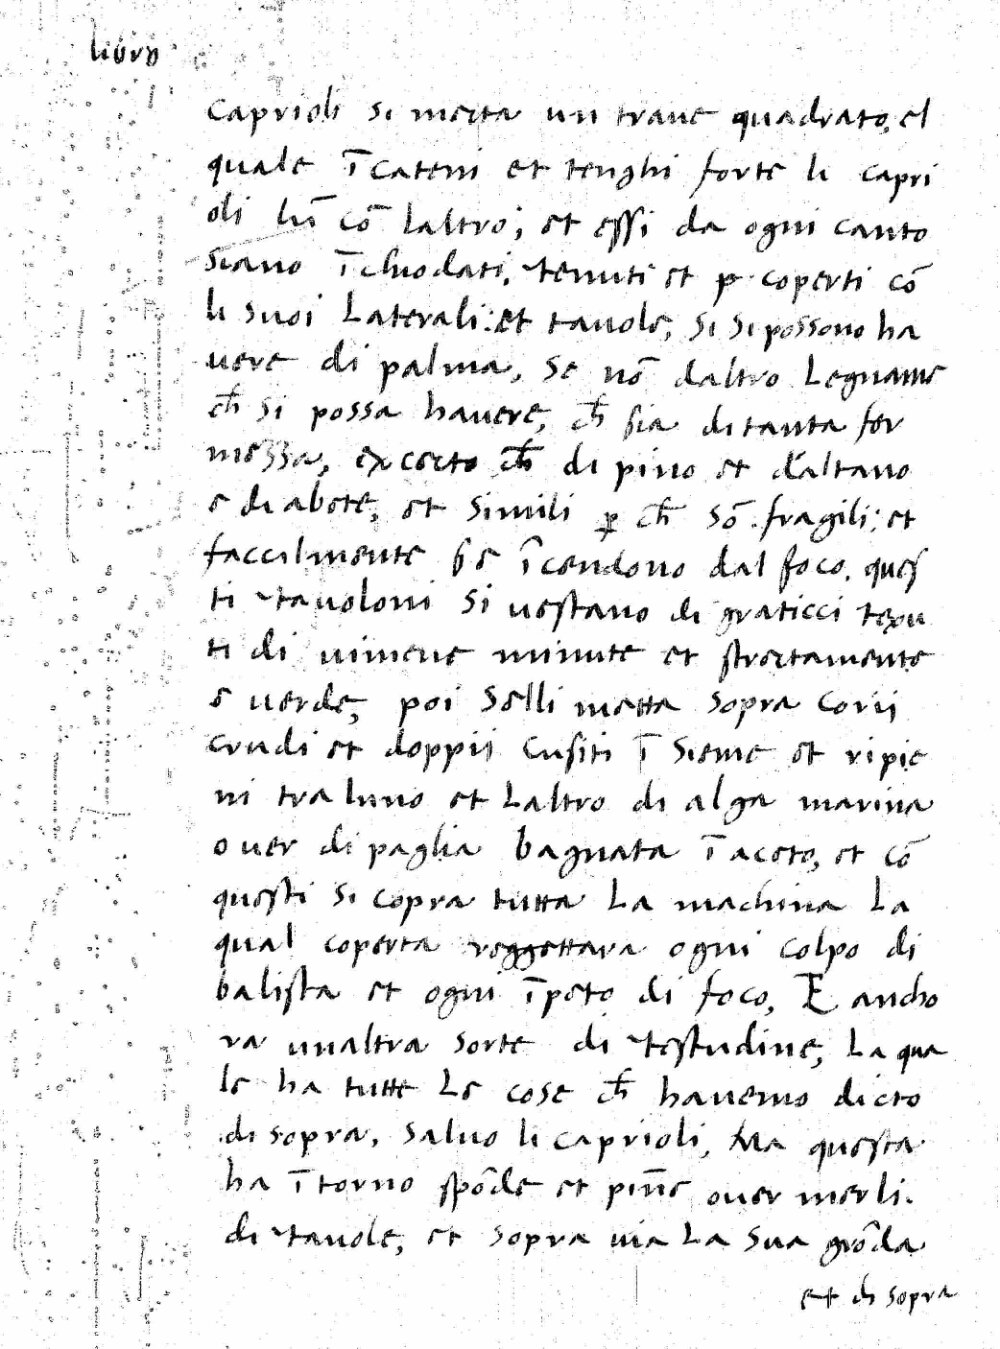 libro
Caprioli si mecta un trave quadrato, el
quale ī cateni et tenghi forte li capri
oli lū cō laltro; et essi da ogni canto
siano ī chiodati, tenuti et p coperti cō
li suoi Laterali: et tavole, si si possono ha
vere di palma, se nō daltro Legname
ch̄ si possa havere, ch̄ sia di tanta fer
mezza, excecto ch̄ di pino et daltano
e di abete, et simili ꝑ ch̄ sō fragili; et
faccilmente se īcendono dal foco. ques
ti tavoloni si vestano di graticci texu
ti di vimene minute et strectamente
e verde, poi selli metta sopra corii
crudi et doppii cusiti ī sieme et ripie
ni tra luno et Laltro di alga marina
over di paglia bagnata ī aceto, et cō
questi si copra tutta La machina La
qual coperta reggettara ogni colpo di
balista et ogni īpeto di foco, E ancho
ra unaltra sorte di testudine, La qua
le ha tutte Le cose ch̄ havemo dicto
di sopra, salvo li caprioli, Ma questa
ha ī torno spōde et pīne over merli
di tavole, et sopra via La sua grōda
et di sopra